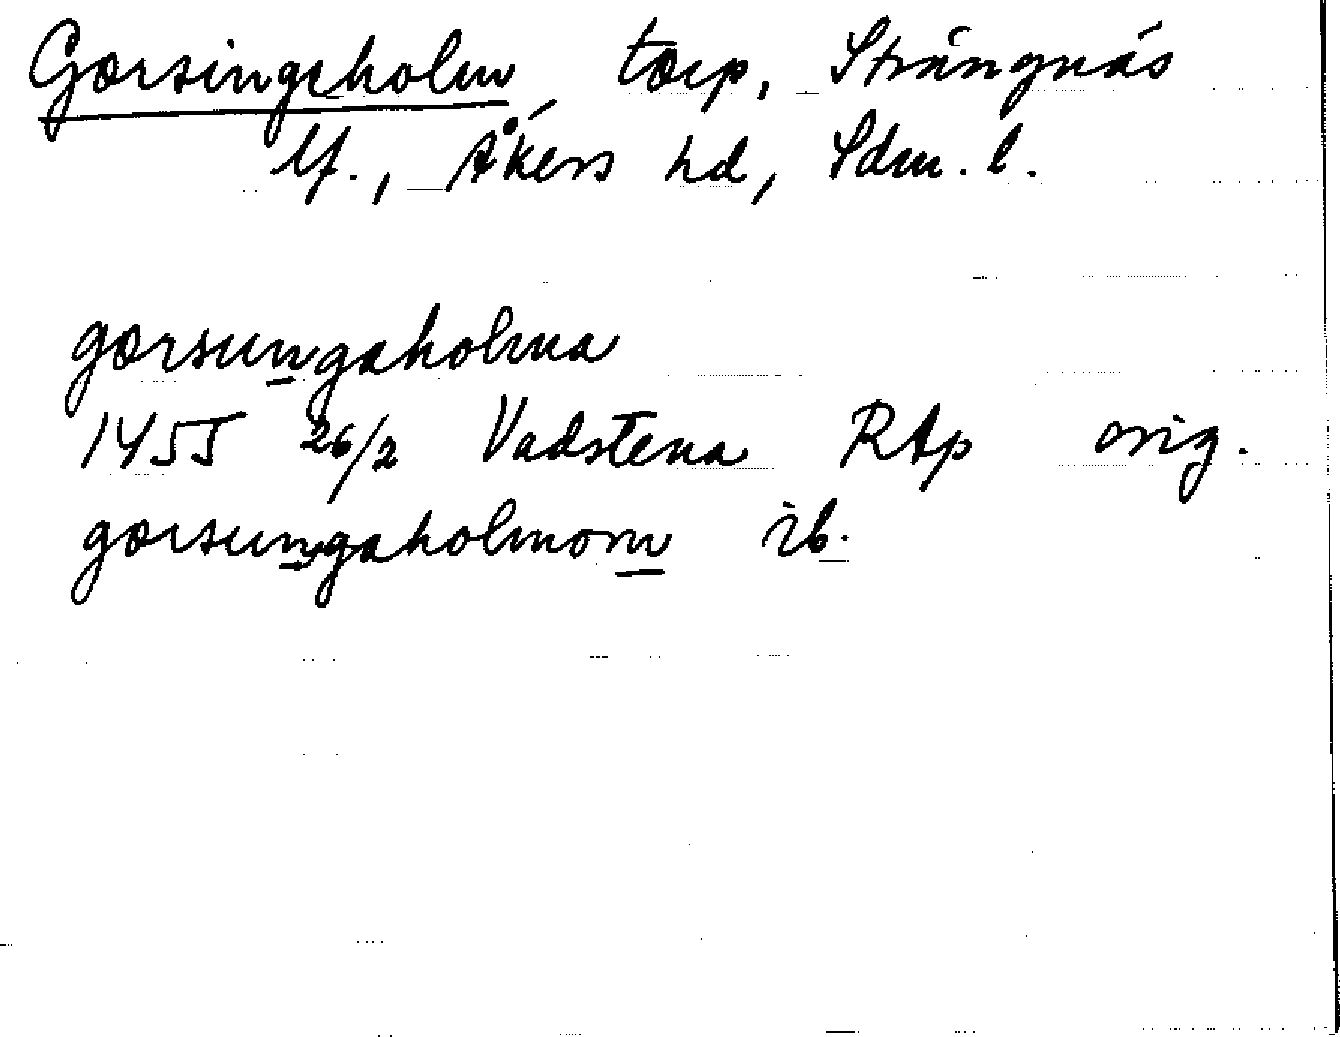 Gorsingeholm, torp, Strängnäs
lf., Åkers hd, Sdm. l.
gorsungaholma
1455 26/2 Vadstena RAp orig.
gorsungaholmom ib.